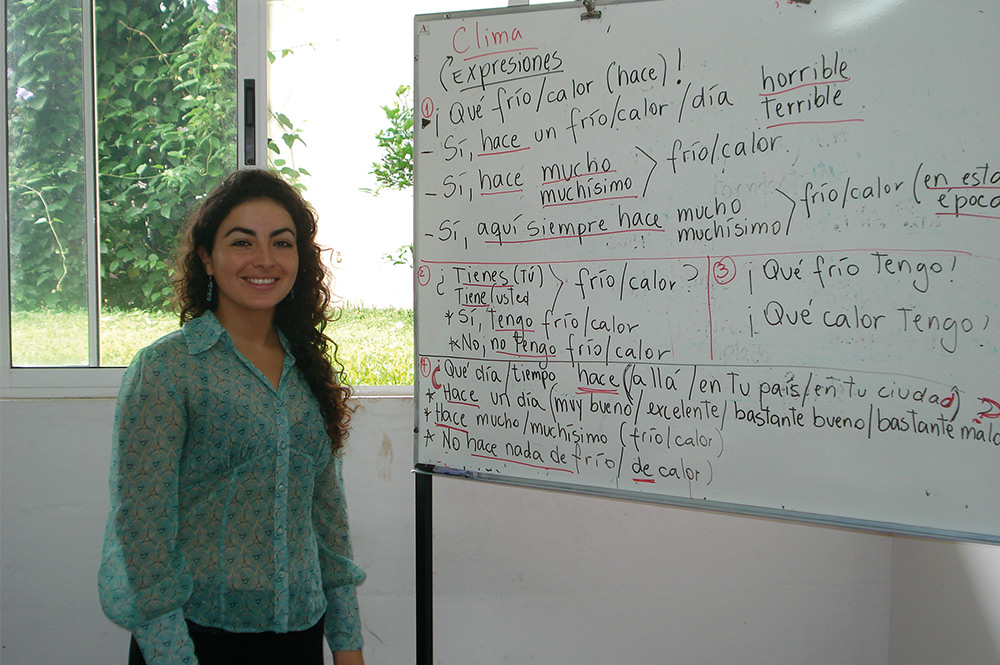 Clima
(Expresiones
① ¡Qué frío/calor (hace)!
- Sí, hace un frío/calor/día horrible
terrible
- Sí, hace mucho frío/calor.
muchísimo
- Sí, aquí siempre hace mucho frío/calor (en esta
muchísimo época
② ¿Tienes (Tú) frío/calor?
Tiene usted
* Sí, tengo frío/calor
* No, no tengo frío/calor
③ ¡Qué frío Tengo!
¡Qué calor Tengo!
④ ¿Qué día/tiempo hace (allá/en tu país/en tu ciudad)?
* Hace un día (muy bueno/excelente/bastante bueno/bastante malo
* Hace mucho/muchísimo (frío/calor)
* No hace nada de frío/de calor)